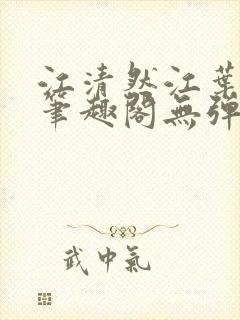 江清然江葉
筆趣閣無彈
武中氣